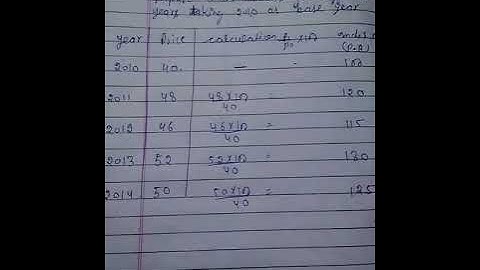 years taking 2010 as base year
year Price calculation P1/P0 × 100 index
(P.R)
2010 40. — - 100
2011 48 48×100/40 = 120
2012 46 46×100/40 = 115
2013 52 52×100/40 = 130
2014 50 50×100/40 = 125